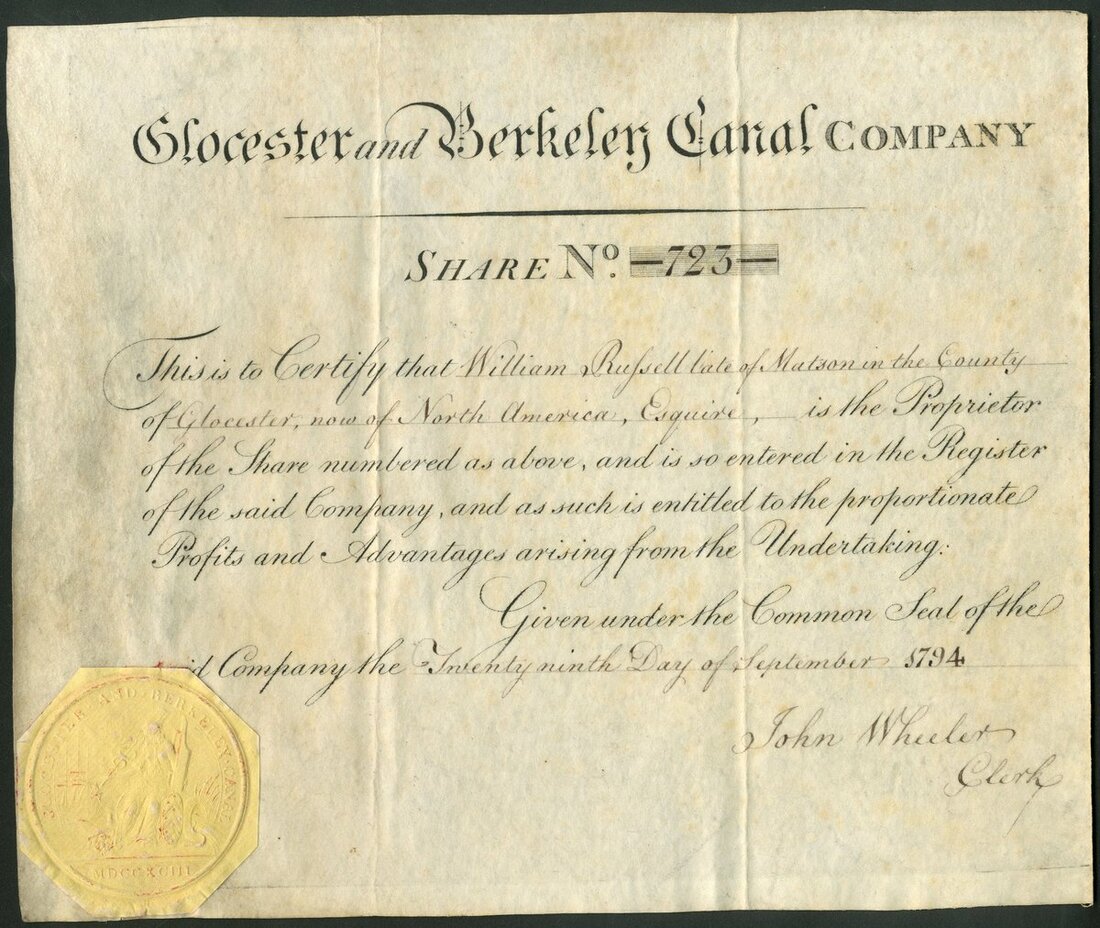 Glocester and Berkeley Canal COMPANY
SHARE No. 723
This is to Certify that William Russell late of Matson in the County
of Glocester, now of North America, Esquire, is the Proprietor
of the Share numbered as above, and is so entered in the Register
of the said Company, and as such is entitled to the proportionate
Profits and Advantages arising from the Undertaking.
Given under the Common Seal of the
said Company the Twenty ninth Day of September 1794
John Wheeler
Clerk
GLOCESTER AND BERKELEY CANAL
MDCCXCIII